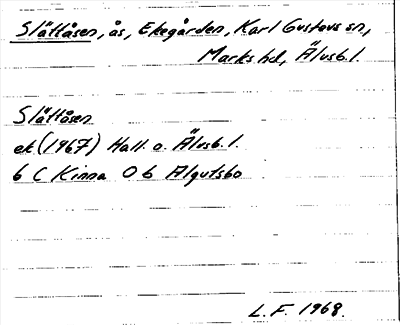 Slättåsen, ås, Ekegården, Karl Gustavs sn,
Marks hd, Älvsb.l.
Slättåsen
ek (1967) Hall. o. Älvsb.l.
6 C Kinna O b Älgutsbo
L.F. 1968.